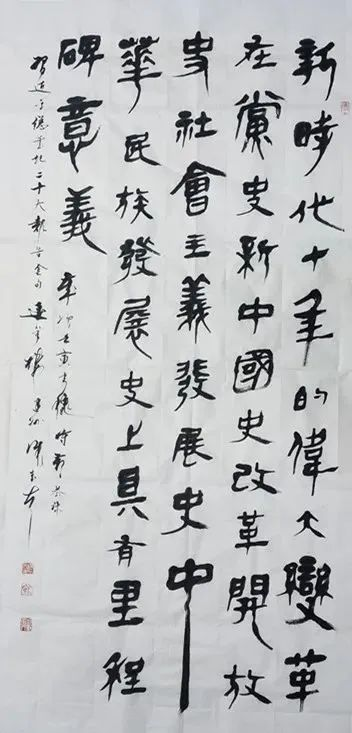 新時代十年的偉大變革
在黨史新中國史改革開放
史社會主義發展史中
華民族發展史上具有里程
碑意義
壬寅之穐
習近平總書記二十大報告金句